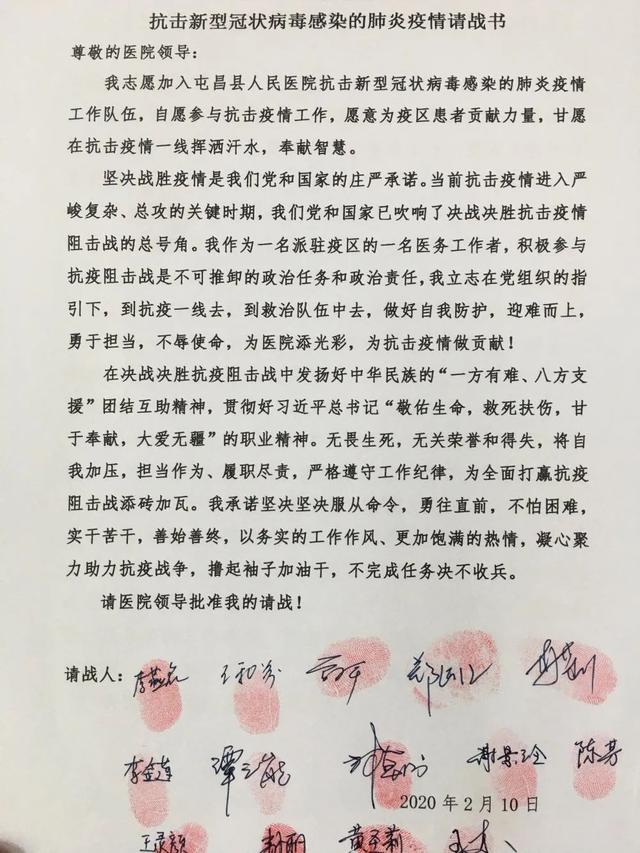 抗击新型冠状病毒感染的肺炎疫情请战书
尊敬的医院领导:
我志愿加入屯昌县人民医院抗击新型冠状病毒感染的肺炎疫情
工作队伍，自愿参与抗击疫情工作，愿意为疫区患者贡献力量，甘愿
在抗击疫情一线挥洒汗水，奉献智慧。
坚决战胜疫情是我们党和国家的庄严承诺。当前抗击疫情进入严
峻复杂、总攻的关键时期，我们党和国家已吹响了决战决胜抗击疫情
阻击战的总号角。我作为一名派驻疫区的一名医务工作者，积极参与
抗疫阻击战是不可推卸的政治任务和政治责任，我立志在党组织的指
引下，到抗疫一线去，到救治队伍中去，做好自我防护，迎难而上，
勇于担当，不辱使命，为医院添光彩，为抗击疫情做贡献！
在决战决胜抗疫阻击战中发扬好中华民族的“一方有难、八方支
援”团结互助精神，贯彻好习近平总书记“敬佑生命，救死扶伤，甘
于奉献，大爱无疆”的职业精神。无畏生死，无关荣誉和得失，将自
我加压，担当作为、履职尽责，严格遵守工作纪律，为全面打赢抗疫
阻击战添砖加瓦。我承诺坚决坚决服从命令，勇往直前，不怕困难，
实干苦干，善始善终，以务实的工作作风、更加饱满的热情，凝心聚
力助力抗疫战争，撸起袖子加油干，不完成任务决不收兵。
请医院领导批准我的请战！
请战人:
李金莲 谢景玲 陈芳
2020 年 2 月 10 日
王录颜 黄圣莉